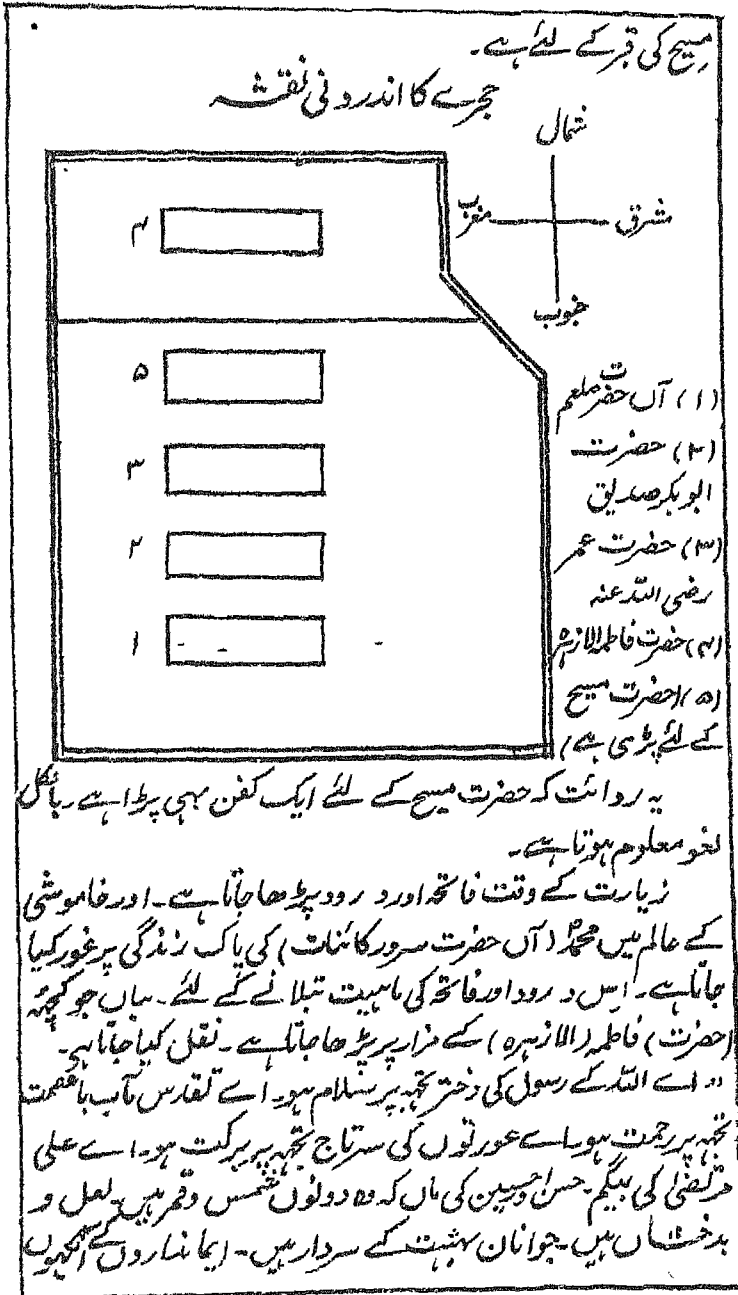 مسیح کی قبر کے لئے ہے۔
حجرے کا اندرونی نقشہ
شمال
مغرب
مشرق
جنوب
۴
۵
۳
۲
۱
(۱) آں حضرت صلعم
(۲) حضرت
ابوبکر صدیق
(۳) حضرت عمر
رضی اللہ عنہ
(۴) حضرت فاطمہ الازہرہ
(۵) (حضرت مسیح
کے لئے پڑی ہے)
یہ روائت کہ حضرت مسیح کے لئے ایک کفن بہی پڑا ہے۔ بالکل
لغو معلوم ہوتا ہے۔
زیارت کے وقت فاتحہ اور درود پڑھا جاتا ہے۔ اور خاموشی
کے عالم میں محمدؐ (آں حضرت سرور کائنات) کی پاک زندگی پر غور کیا
جاتا ہے۔ اس درود اور فاتحہ کی ماہیت بتلانے کے لئے۔ یہاں جو کچھہ
(حضرت) فاطمہ (الازہرہ) کے مزار پر پڑھا جاتا ہے۔ نقل کیا جاتا ہے۔
"اے اللہ کے رسول کی دختر تجھہ پر سلام ہو۔ اے تقدس مآب باعصمت
تجھہ پر رحمت ہو۔ اے عورتوں کی سرتاج تجھہ پر برکت ہو۔ اے علی
مرتضیٰ کی بیگم۔ حسن اور حسین کی ماں کہ وہ دونوں شمس و قمر ہیں۔ لعل و
بدخشاں ہیں۔ جوانان بہشت کے سردار ہیں۔ ایمانداروں کے آنکھوں